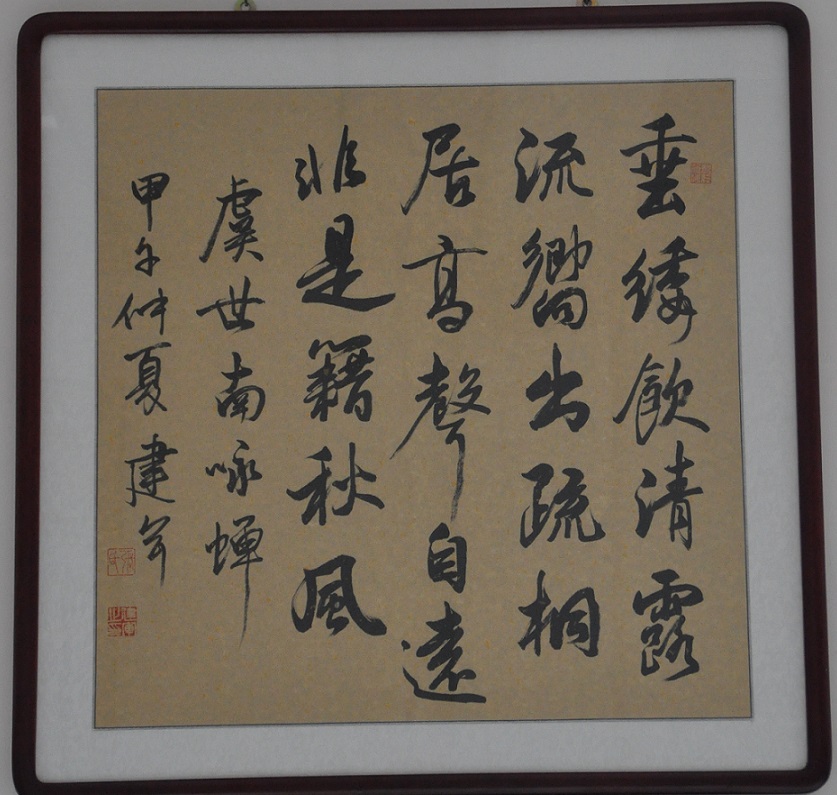 垂緌飲清露
流響出疏桐
居高聲自遠
非是籍秋風
虞世南咏蟬
甲午仲夏建